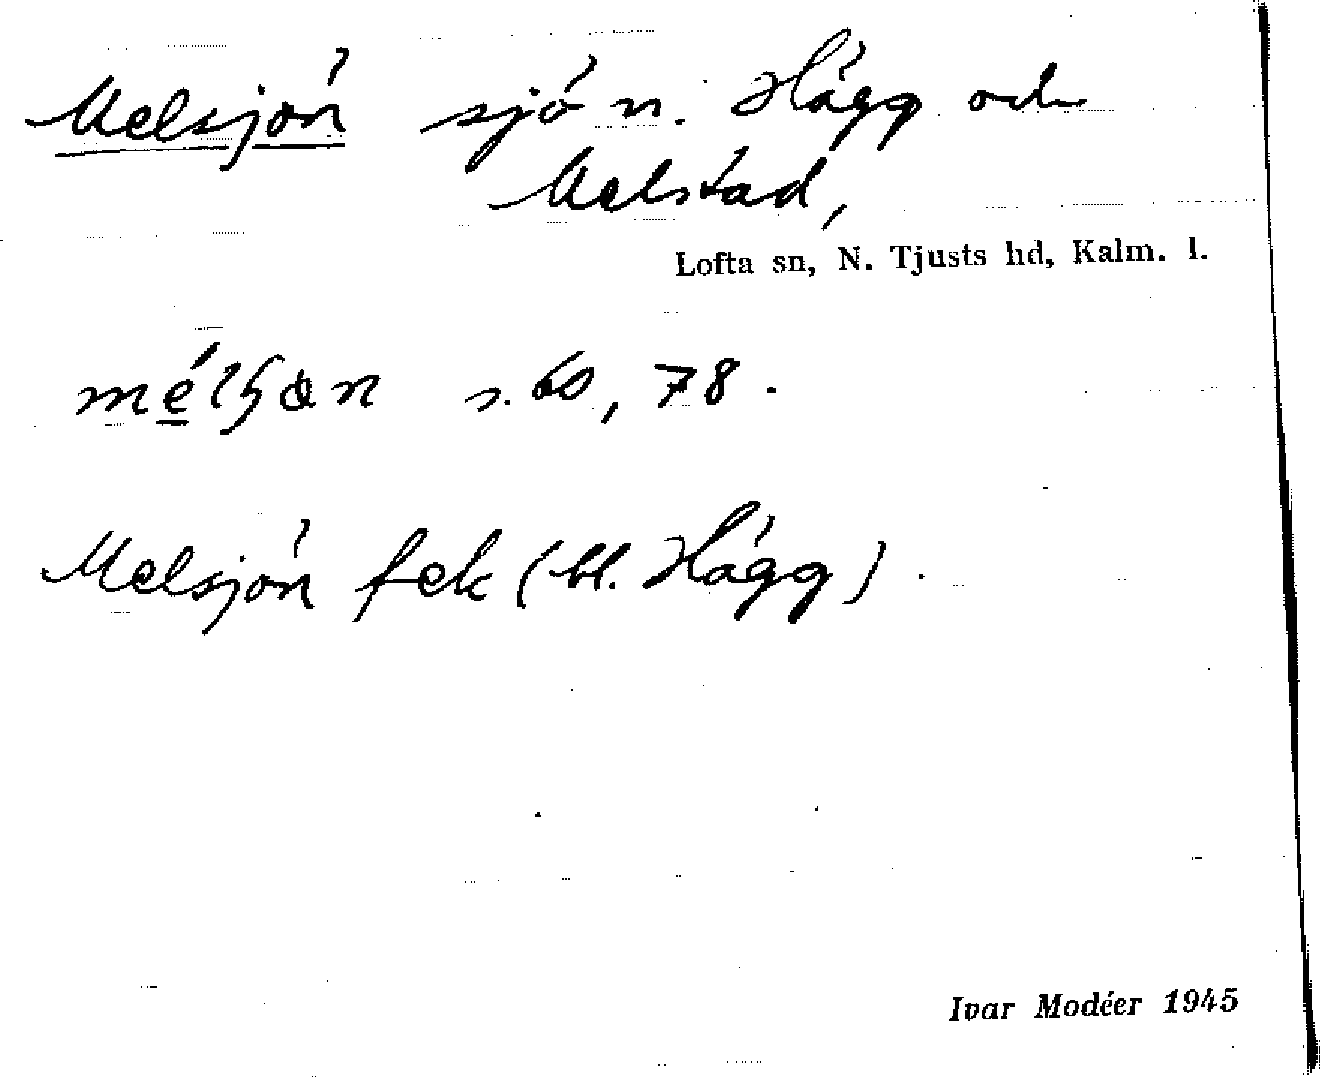 Melsjön sjö n. Hägg och
Melstad,
Lofta sn, N. Tjusts hd, Kalm. l.
s. 60, 78.
Melsjön fek (bl. Hägg).
Ivar Modéer 1945